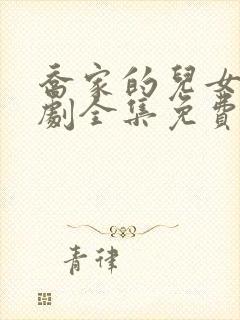 喬家的兒女
劇全集免費
青律